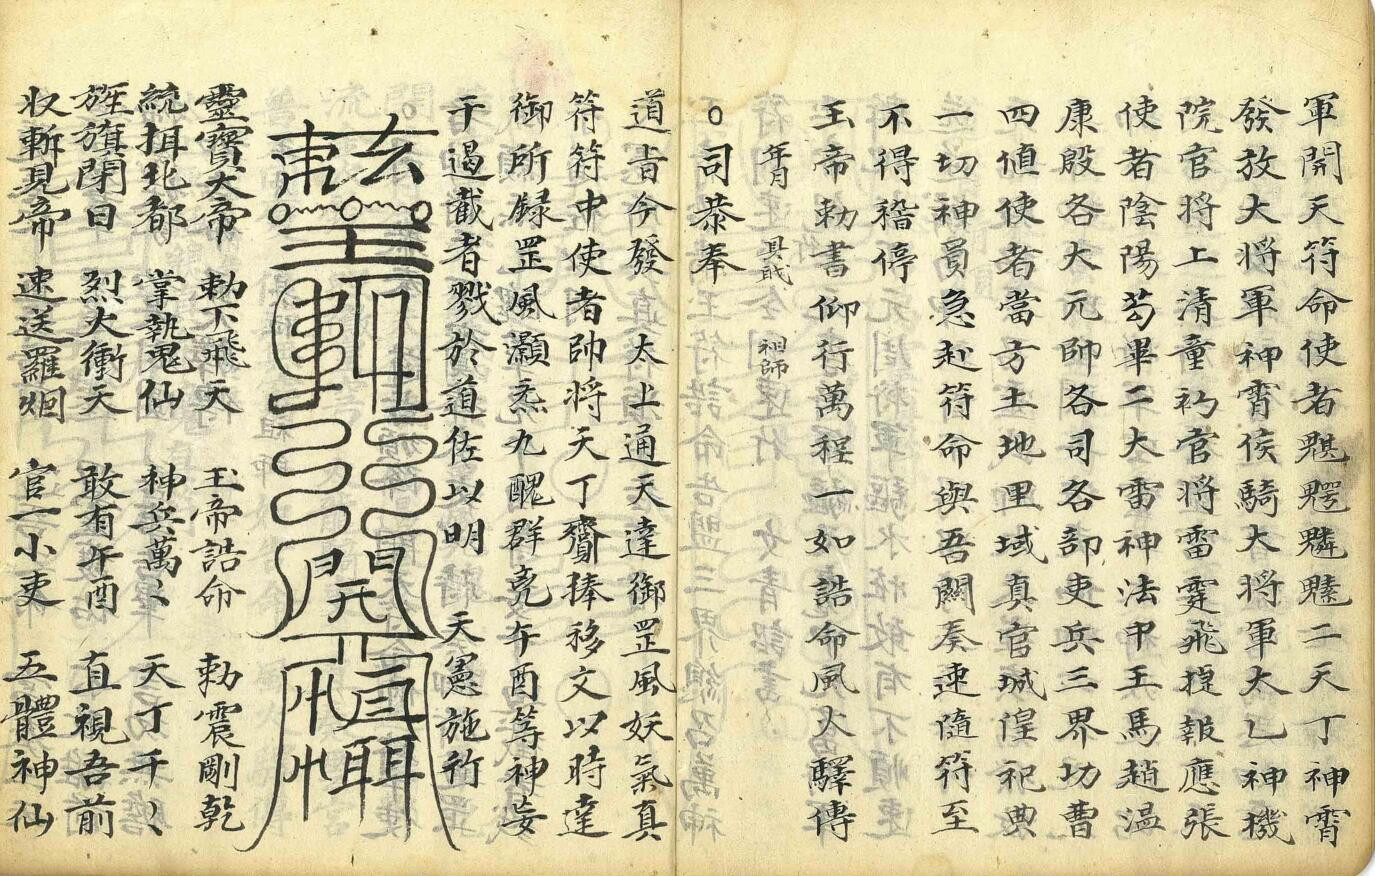 軍開天符命使者魌䰢魑魅二天丁神霄
發放大將軍神霄侯騎大將軍太乙神機
院官將上清童初官將雷霆飛捷報應張
使者陰陽苟畢二大雷神法中王馬趙温
康殷各大元帥各司各部吏兵三界功曹
四值使者當方土地里域真官城隍祀典
一切神員急赴符命與吾關奏速隨符至
不得稽停
玉帝勅書仰行萬程一如誥命風火驛傳
年月 具戝 祖師
○司恭奉
道旨今發真太上通天達御罡風妖氣真
符符中使者帥將天丁齎捧移文以時達
御所録罡風灝炁九醜群堯午酉等神妄
干遏截者戮於道佐以明 天憲施竹
玄 開
靈寶大帝 勅下飛天 玉帝誥命 勅震剛乾
統摂北都 掌執鬼仙 神兵萬〻 天丁千〻
旌旗閉日 烈火衝天 敢有午酉 直視吾前
収斬見帝 速送羅烟 官一小吏 五體神仙